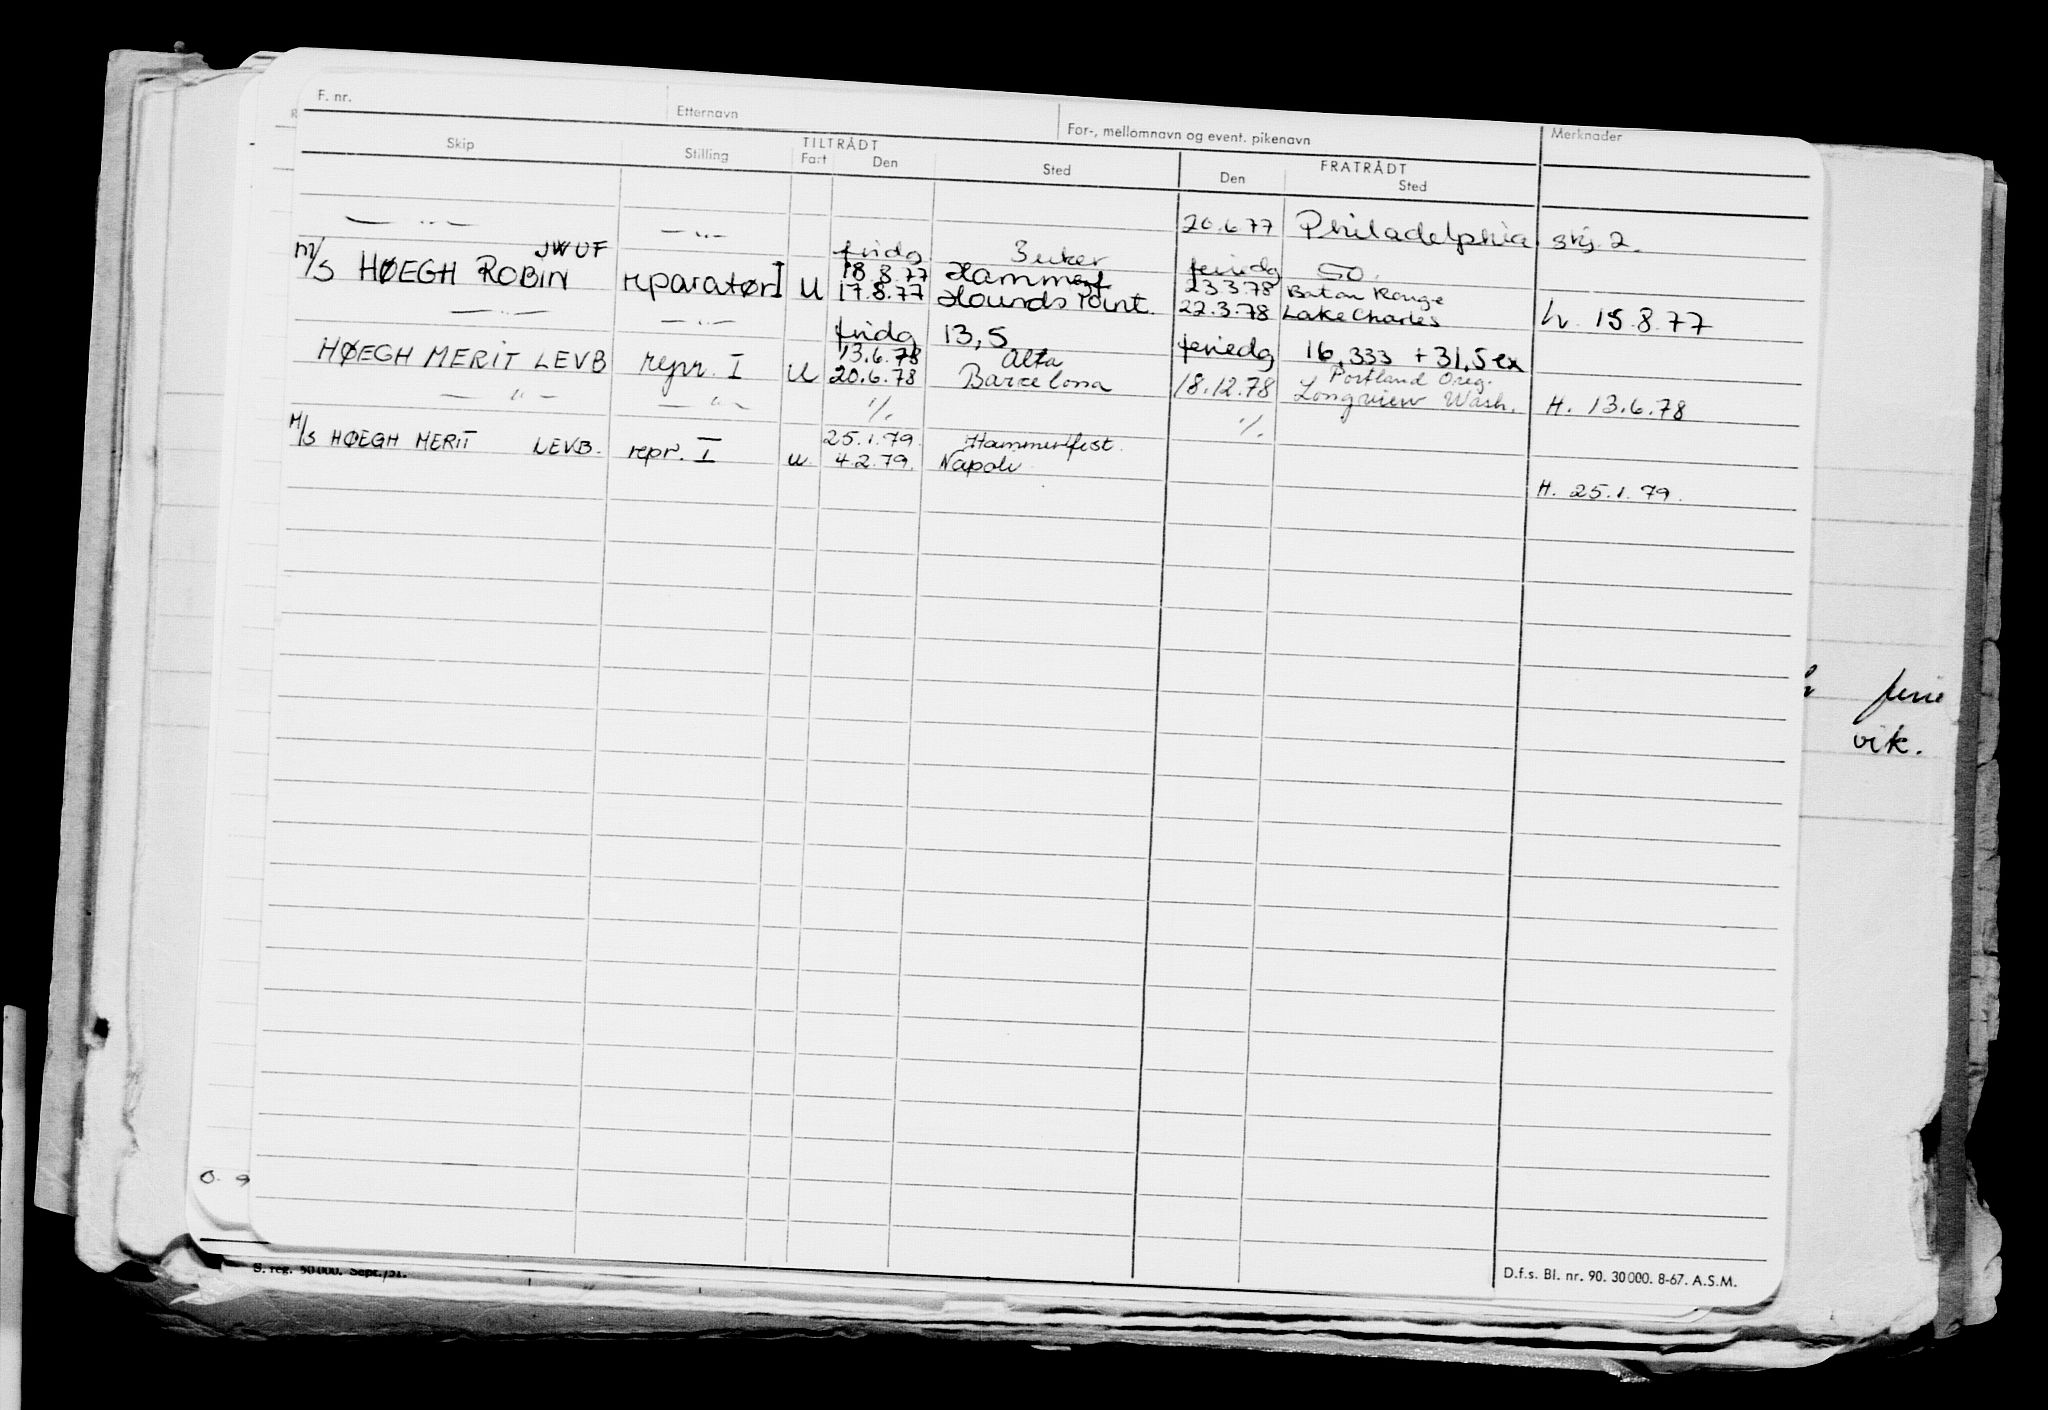 F. nr. Etternavn For-, mellomnavn og event. pikenavn Merknader
Skip Stilling TILTRÅDT FRATRÅDT
Fart Den Sted Den Sted
— " — — " — 20.6.77 Philadelphia skj. 2.
JWUF fridg 3 uker feriedg 50.
M/S HØEGH ROBIN reparatør I U 18.8.77 Hammerf 23.3.78 Baton Rouge
17.8.77 Hounds Point. 22.3.78 Lake Charles h. 15.8.77
— " — — " — fridg 13,5 feriedg 16,333 + 31,5 ex
HØEGH MERIT LEVB repr. I U 13.6.78 Alta Portland Oreg.
20.6.78 Barcelona 18.12.78 Longview Wash. H. 13.6.78
— " — — " — %. %.
M/S HØEGH MERIT LEVB. repr. I u 25.1.79. Hammerfest.
4.2.79. Napoli
H. 25.1.79.
ferie
vik.
0. 9
S. reg. 50 000. Sept./51.
D.f.s. Bl. nr. 90. 30 000. 8-67. A.S.M.